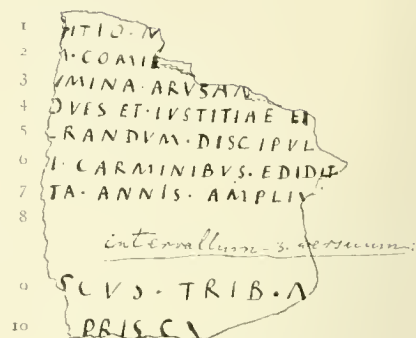 1 ITIO·N
2 COMIE
3 IMINA·ARVSAN
4 OVES ET·IVSTITIAE ET
5 RANDVM·DISCIPVL
6 I·CARMINIBVS·EDIDIT
7 TA·ANNIS·AMPLIV
8
intervallum 3 versuum:
9 SCVS·TRIB·A
10 PRISC